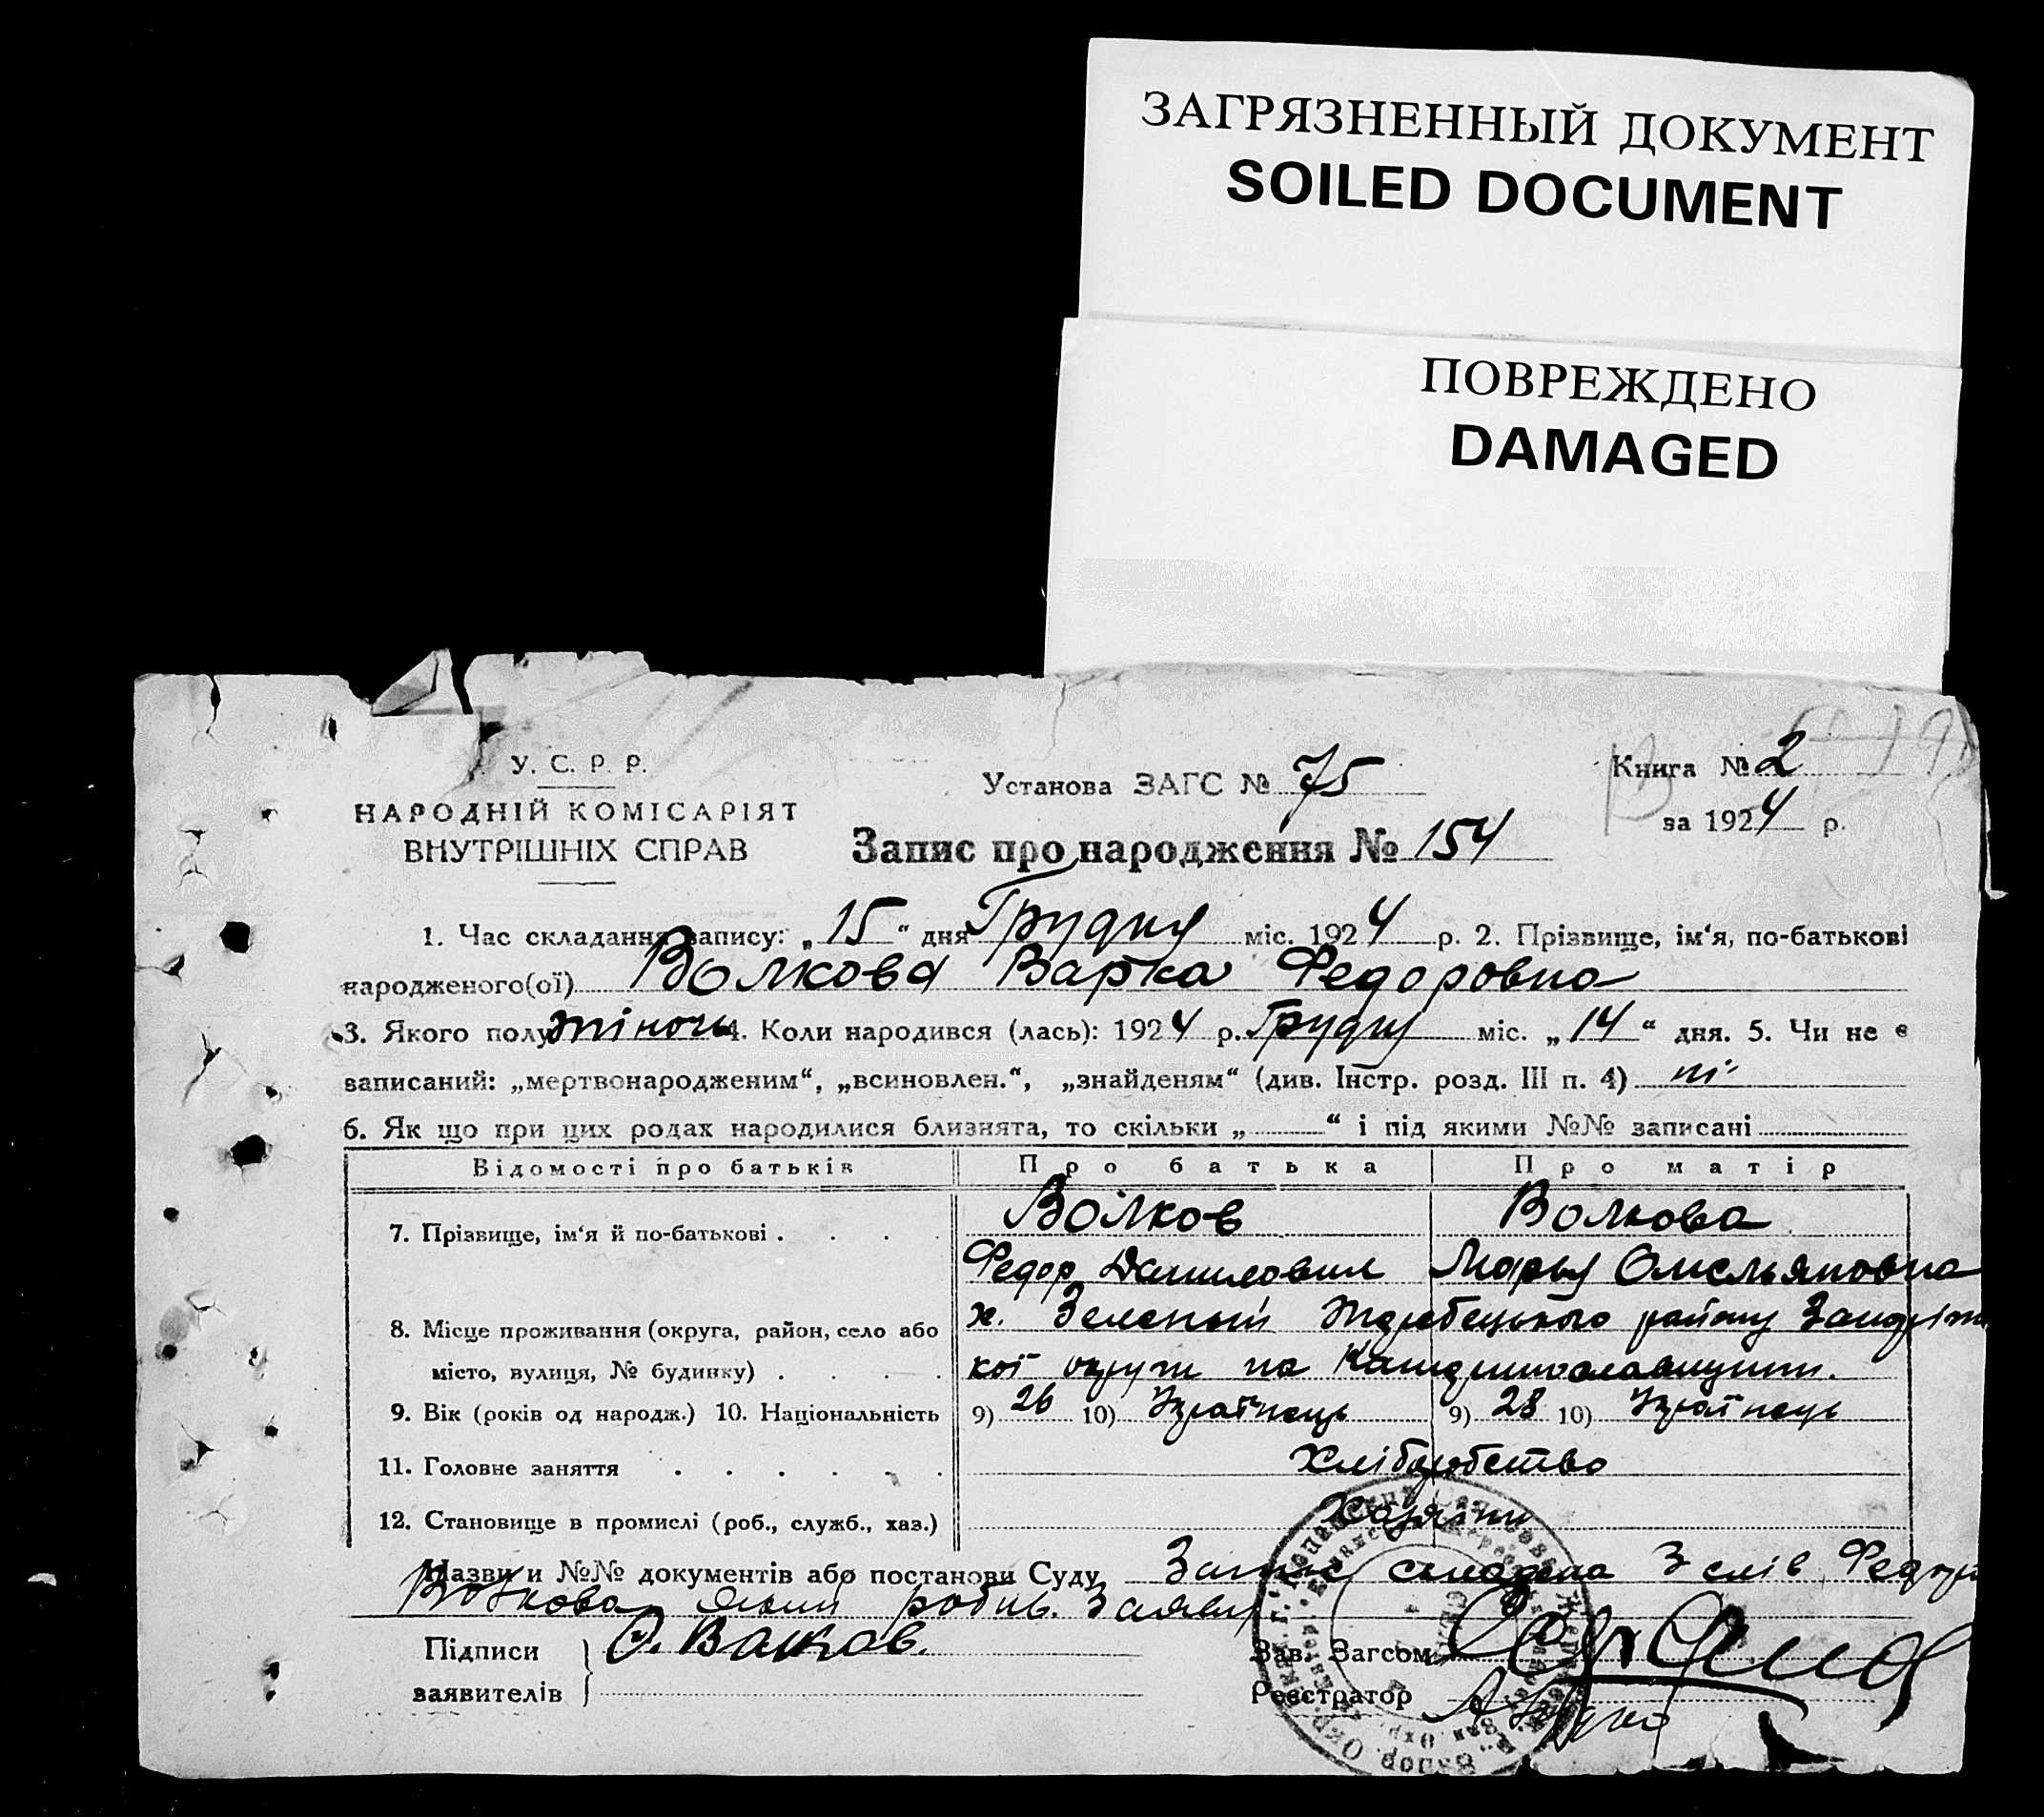 ЗАГРЯЗНЕННЫЙ ДОКУМЕНТ
SOILED DOCUMENT
ПОВРЕЖДЕНО
DAMAGED
У. С. Р. Р.
НАРОДНІЙ КОМІСАРІЯТ
ВНУТРІШНІХ СПРАВ
Установа ЗАГС № 75
Книга № 2
за 1924 р.
Запис про народження № 154
1. Час складання запису: „15“ дня Грудня міс. 1924 р. 2. Прізвище, ім‘я, по-батькові
народженого(ої) Волкова Варка Федоровна
3. Якого полу жіноч 4. Коли народився (лась): 1924 р. Грудня міс. „14“ дня. 5. Чи не є
записаний: „мертвонародженим“, „всиновлен.“, „знайденям“ (див. Інстр. розд. III п. 4) ні
6. Як що при цих родах народилися близнята, то скільки „ “ і під якими №№ записані
Відомості про батьків Про батька Про матір
7. Прізвище, ім‘я й по-батькові Волков Волкова
Федор Данилович Марья Омельяновна
8. Місце проживання (округа, район, село або х. Зеленый Жеребецького району
місто, вулиця, № будинку) кої округи на
9. Вік (років од народж.) 10. Національність 9) 26 10) Українець 9) 28 10) Українець
11. Головне заняття Хліборобство
12. Становище в промислі (роб., служб., хаз.) Хазяїн
Назви и №№ документів або постанови Суду Запис складена З слів Федора
Волкова робив. Заяву
Підписи заявителів Ф. Валков.
Зав. Загсом
Реєстратор